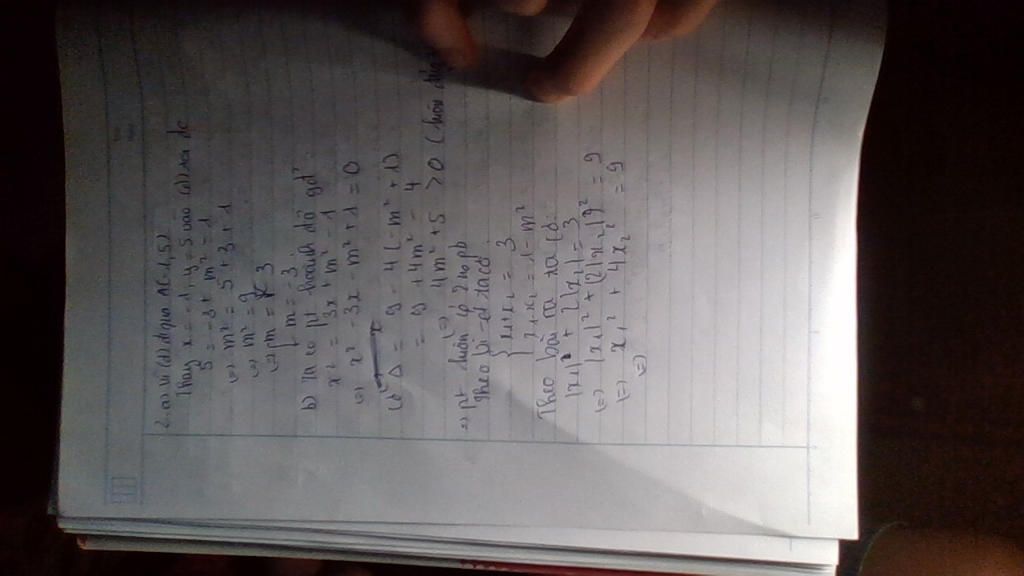 2.a) Vì (d) đi qua A(-1,5)
Thay x = -1, y = 5 vào (d) ta đc
5 = -3 + m² - 1
(=) m² = 5 + 3 + 1
(=) m² = 9
(=) [m = 3
[m = -3
b) Ta có pt hoành độ gđ:
x² = 3x + m² - 1
(=) x² - 3x - m² + 1 = 0
Có Δ = 9 - 4(-m² + 1)
= 9 + 4m² - 4
= 4m² + 5 > 0 (luôn
=) pt luôn có 2 no pb
Theo Vi-ét ta có:
{ x1 + x2 = 3
x1.x2 = 1 - m²
Theo bài ra ta có:
|x1| + 2|x2| = 3
(=) |x1|² + (2|x2|)² = 9
(=) x1² + 4x2² = 9
(=)